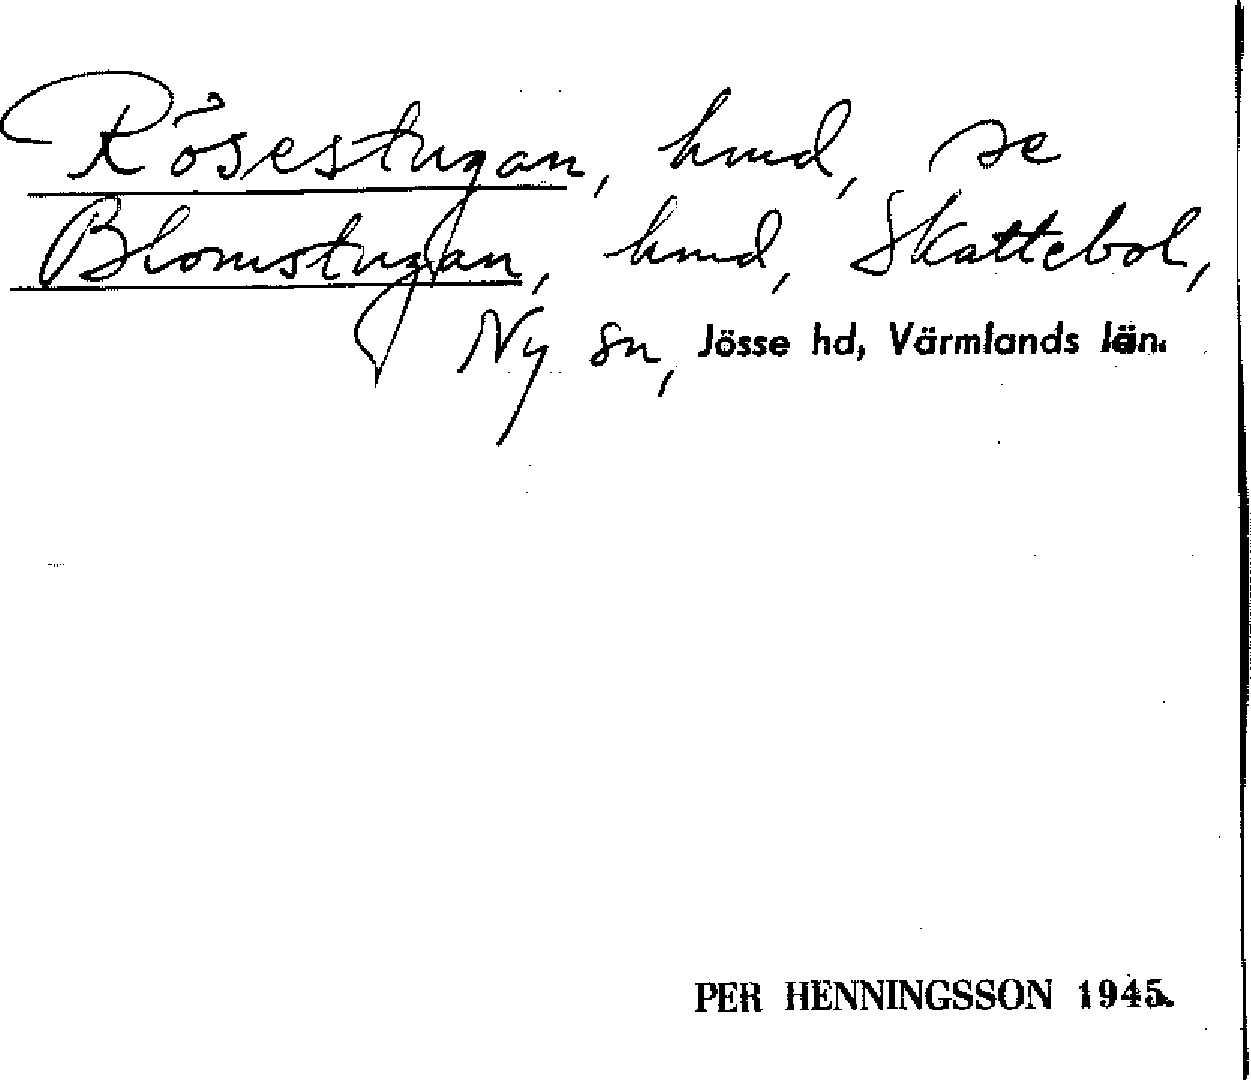 Rösestugan, hmd, se
Blomstugan, hmd, Skattebol,
Ny sn, Jösse hd, Värmlands län.
PER HENNINGSSON 1945.